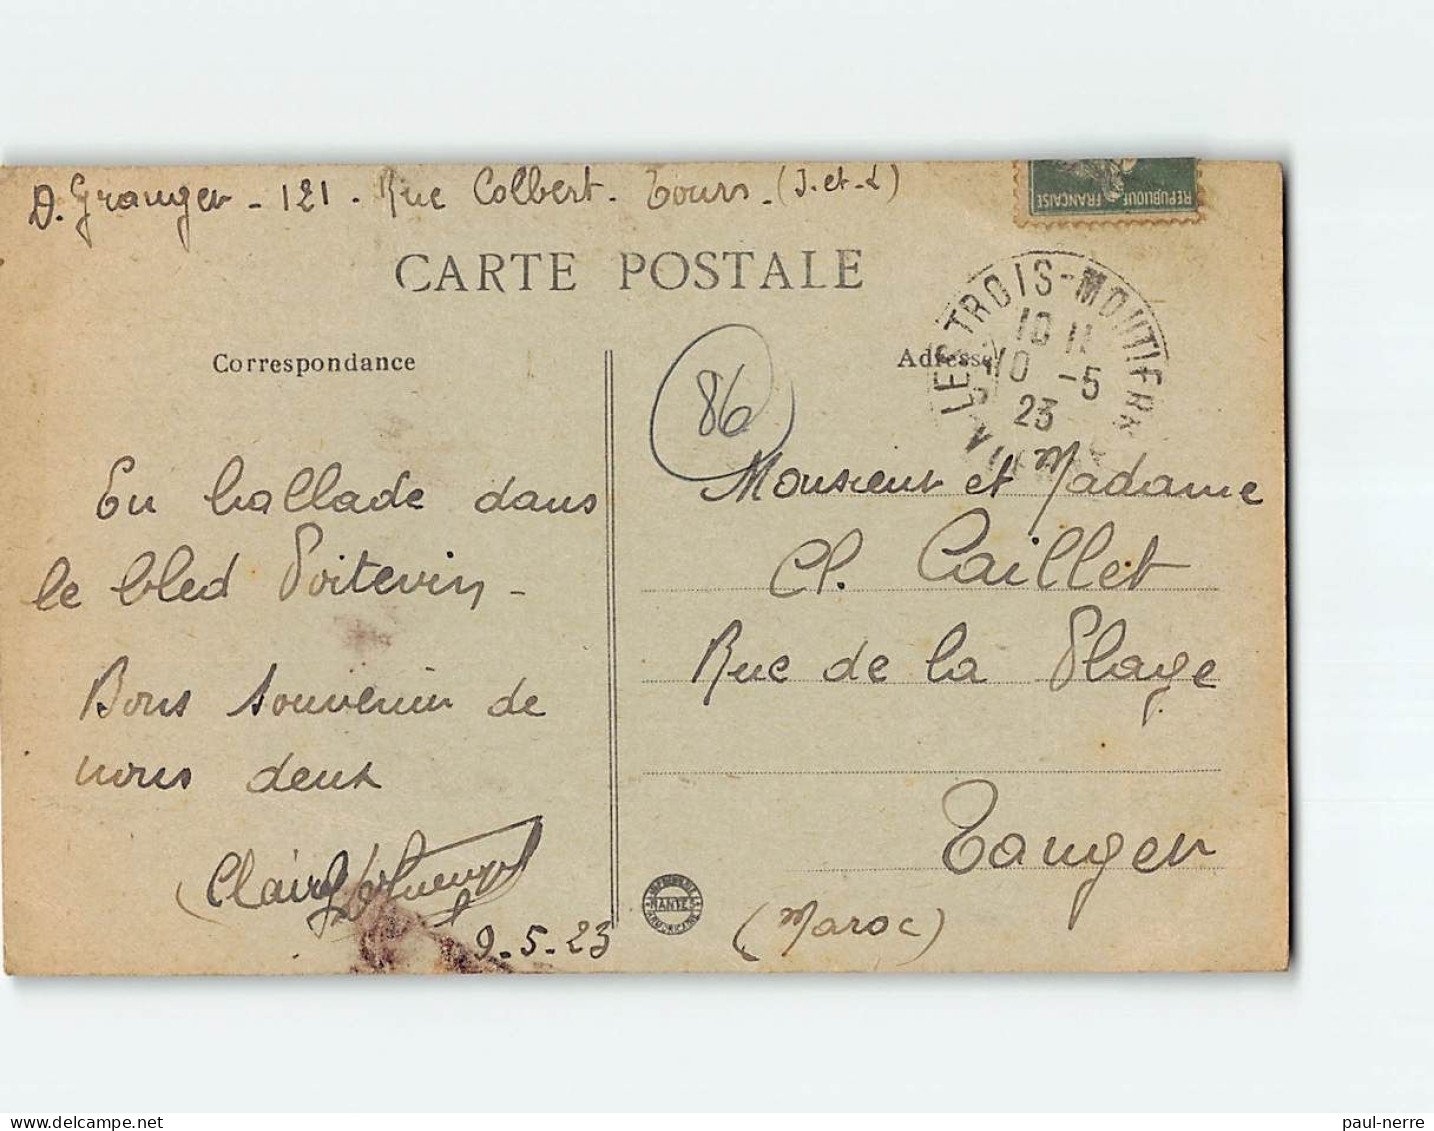 D. Granger - 121 - Rue Colbert - Tours - (I-et-L)
REPUBLIQUE FRANÇAISE
CARTE POSTALE
LES TROIS-MOUTIERS
10 11
10 -5
23
Correspondance
Adresse
86
En ballade dans
le bled Poitevin -
Bons souvenirs de
nous deux
Claire
9-5-23
Monsieur et Madame
Cl. Caillet
Rue de la Plage
Tanger
(Maroc)
NANTES
paul-nerre